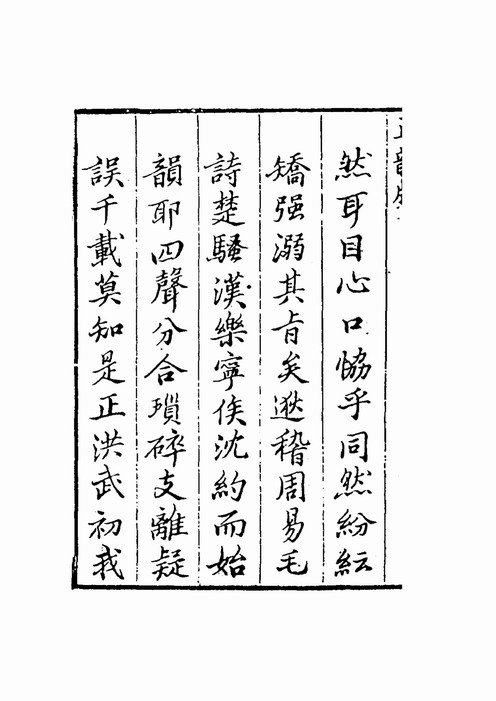 然耳目心口恊乎同然紛紜
矯强溺其㫖矣逖稽周易毛
詩楚騷漢樂寧俟沈約而始
韻耶四聲分合瑣碎支離疑
誤千載莫知是正洪武初我